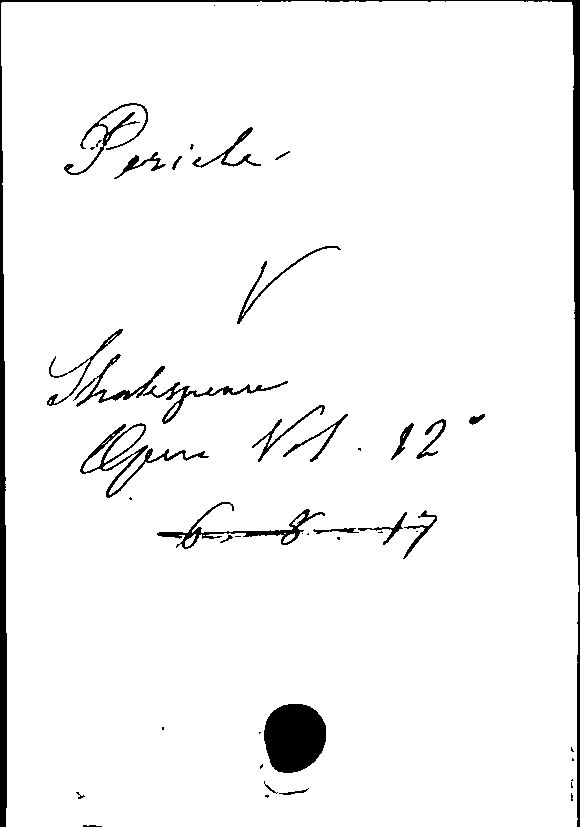 Pericle -
V
Shakespeare
Opere Vol. 12°
6. 8. 17